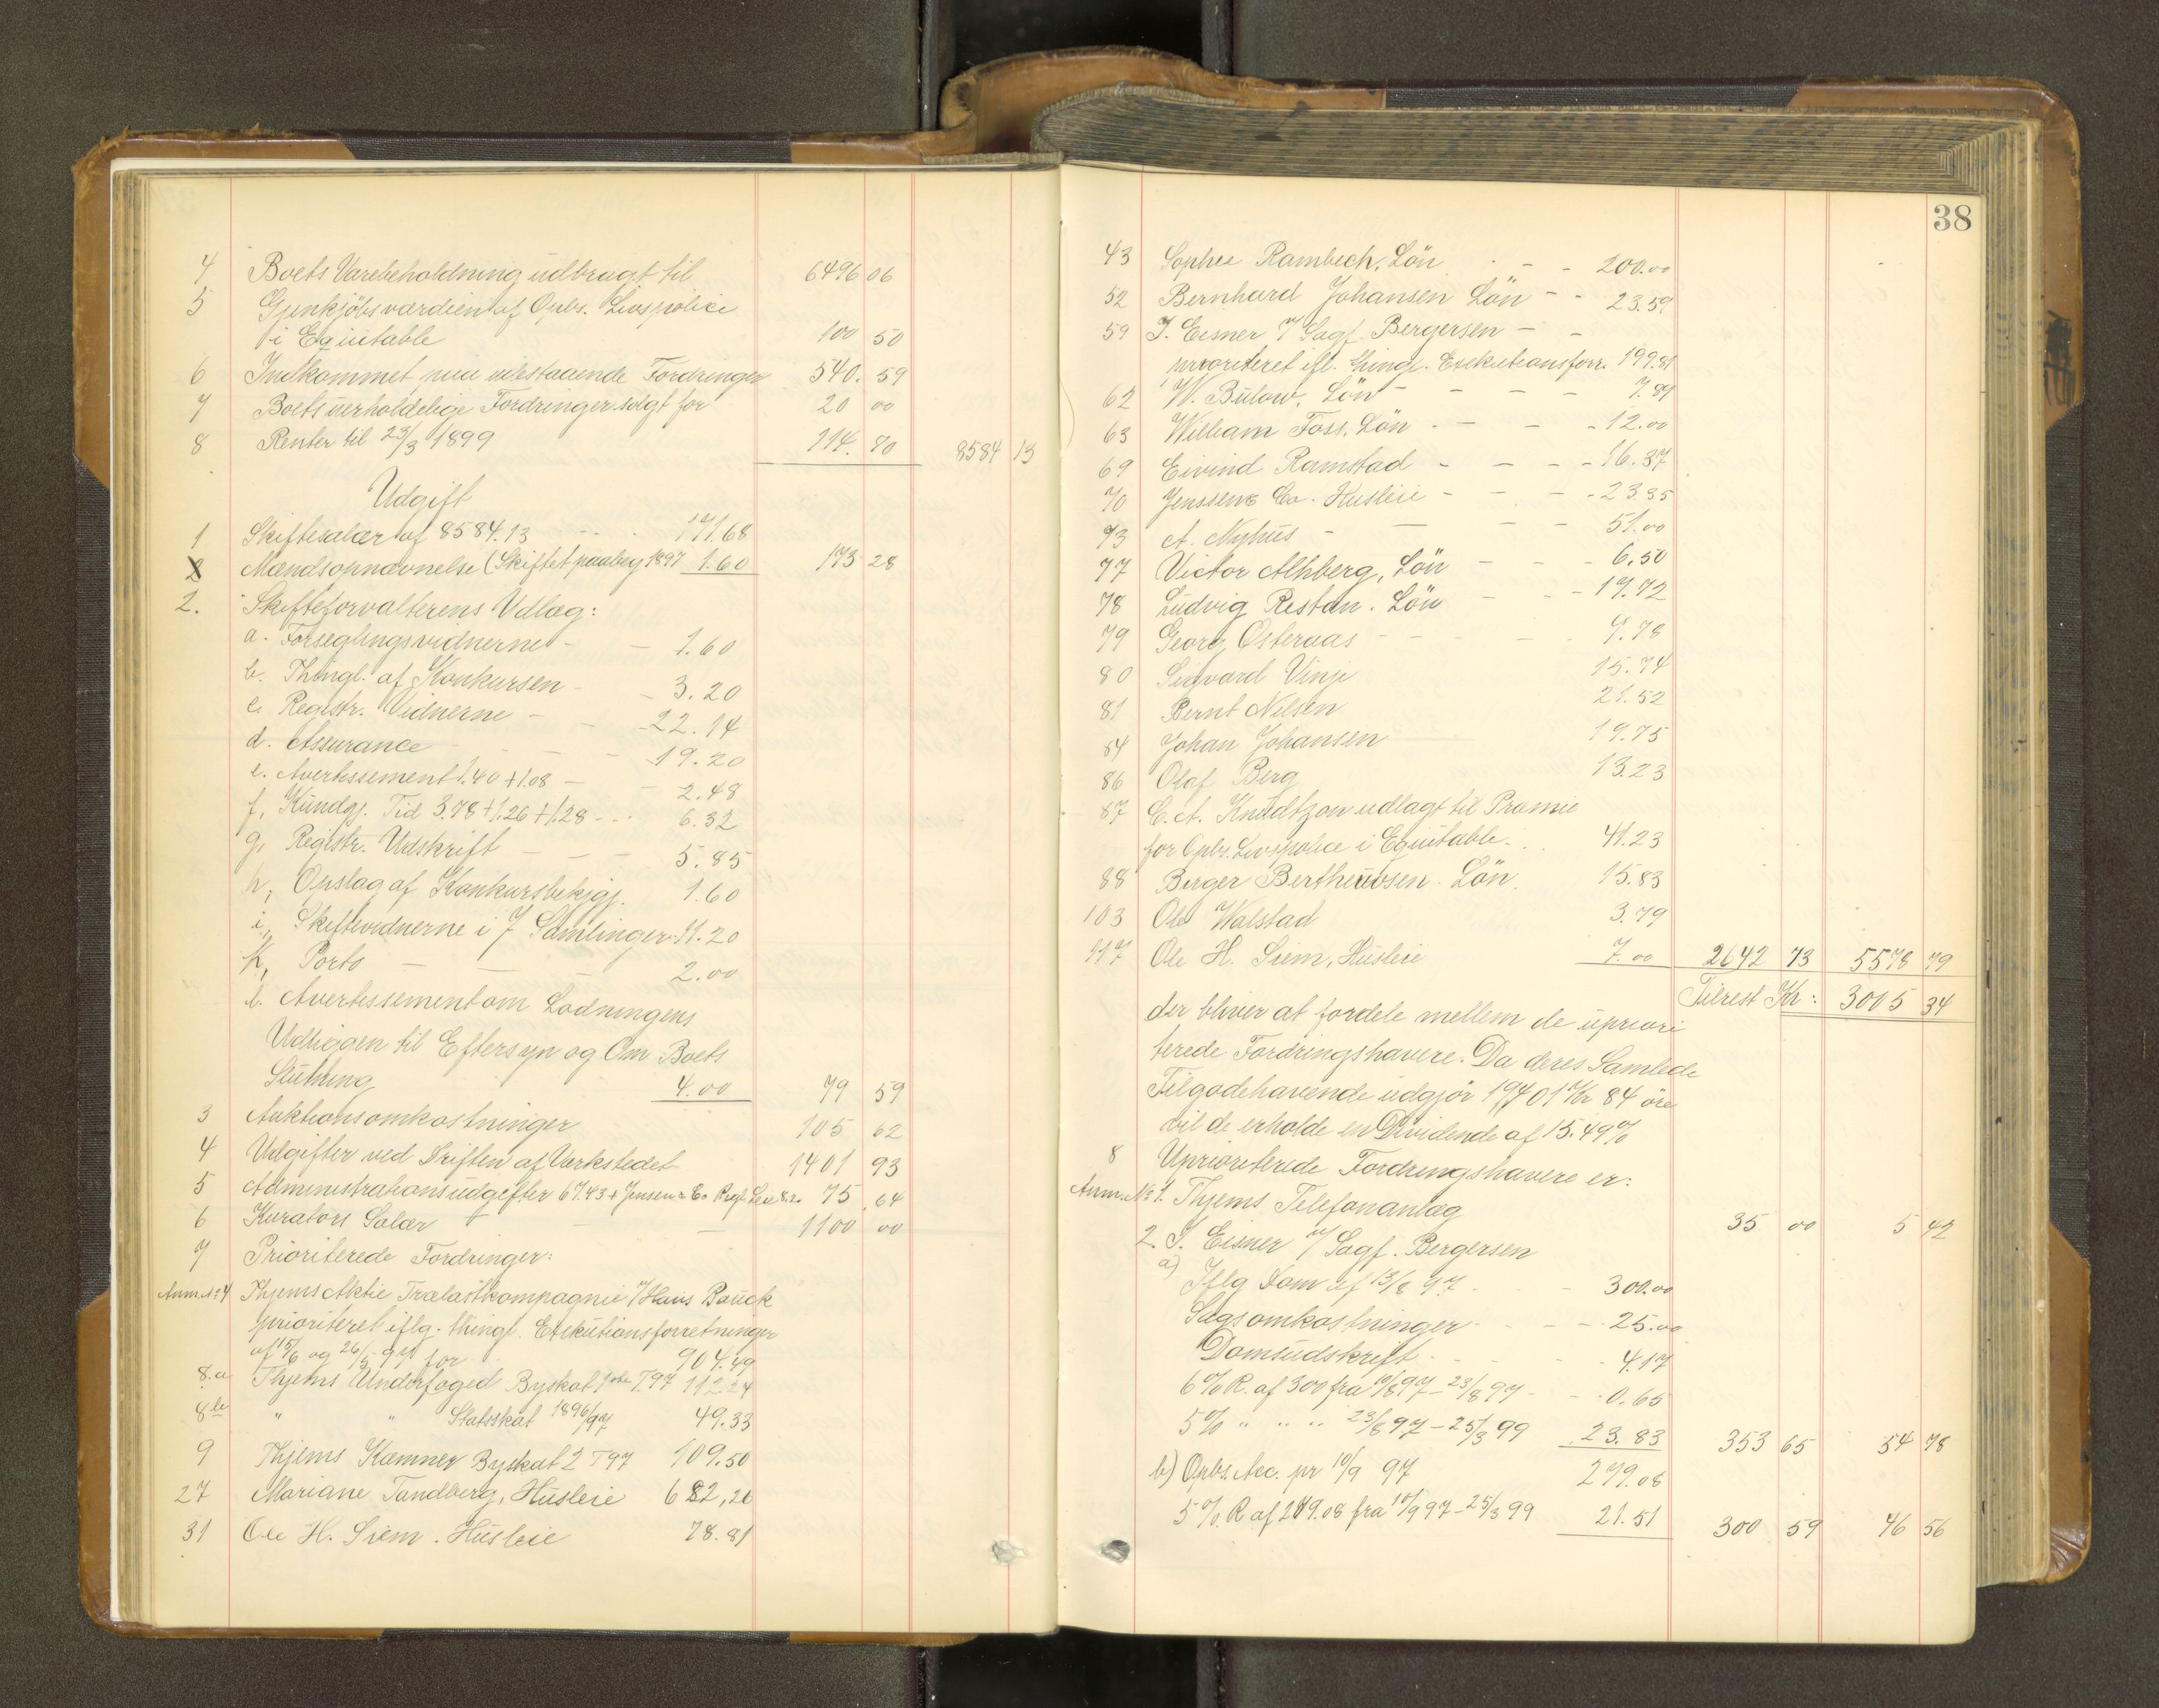 4 Boets Varebeholdning udbragt til 6496 06
5 Gjenkjöbsværdien af Opbs. Livspolice
i Equitable 100 50
6 Indkommet udestaaende Fordringer 540. 59
7 Boets uerholdelige Fordringer solgt for 20 00
8 Renter til 23/3 1899 114. 80 8584 13
Udgift
1 Skiftesalær af 8584.13 - - - 171.68
2 Mændsopnævnelse (Skiftet paabeg 1897 1.60 173 28
2. Skifteforvalterens Udlæg:
a. Forseglingsvidnerne - - 1.60
b. Thingl. af Konkursen - - 3.20
c. Registr. Vidnerne - - 22.14
d. Assurance - - - 19.20
e. Avertissement 1.40 + 1.08 - - 2.48
f, Kundgj. Tid 3.78 + 1.26 + 1.28 - - - 6.32
g, Registr. Udskrift - - - 5.85
h, Opslag af Konkursbekjgj. 1.60
i, Skiftevidnerne i 7 Samlinger 11.20
k, Porto - - - 2.00
l. Avertissement om Lodningens
Udliggen til Eftersyn og Om Boets
Slutning 4.00 79 59
3 Auktionsomkostninger 105 62
4 Udgifter ved Driften af Værkstedet 1401 93
5 Administrationsudgifter 67.43 + Jensen & Co Leie 8.20 75 64
6 Kurators Salær - - 1100 00
7 Prioriterede Fordringer:
Anm. No 4 Thjems Aktie Trælastkompagnie v/ Hans Bauck
prioriteret iflg. thingl. Exekutionsforretninger
af 15/6 og 26/5 97 for 904.49
8.a Thjems Underfoged Byskat 1ste T. 97 112.24
8 b " " Statsskat 1896/97 49.33
9 Thjems Kæmner Byskat 2 T 97 109.50
27 Mariane Tandberg, Husleie 682,26
31 Ole H. Siem. Husleie 78.81
38
43 Sophie Rambech, Lön - - - 200.00
52 Bernhard Johansen Lön - - 23.59
59 J. Eisner v/ Sagf. Bergersen - -
prioriteret ifl. thingl. Exekutionsforr. 199.81
62 W. Bülow, Lön - - - - 7.89
63 William Foss, Lön - - - - 12.00
69 Eivind Ramstad - - - - 16.37
70 Jenssen & Co. Husleie - - - - 23.35
73 A. Nyhus - - - - 51.00
77 Victor Alhberg, Lön - - - 6.50
78 Ludvig Restan. Lön - - - 19.72
79 Georg Österaas - - - - 9.78
80 Sigvard Vinje 15.74
81 Bernt Nilsen 21.52
84 Johan Johansen 19.75
86 Olaf Berg 13.23
87 C. A. Knudtzon udlagt til Præmie
for Opbs. Livspolice i Equitable. . . 41.23
88 Birger Bertheussen. Lön. 15.83
103 Ole Walstad 3.79
117 Ole H. Siem, Husleie 7.00 2642 73 5578 79
Tilrest Kr: 3005 34
der bliver at fordele mellem de upriori
terede Fordringshavere. Da deres Samlede
Tilgodehavende udgjör 19401 Kr 84 öre
vil de erholde en Dividende af 15.49%
8 Uprioriterede Fordringshavere er:
Anm. No 1. Thjems Telefonanlæg 35 00 5 42
2. J. Eisner v/ Sagf. Bergersen
a) Iflg Dom af 13/8 97 - - 300.00
Sagsomkostninger - - - - 25.00
Domsudskrift - - - - 4.17
6% R. af 300 fra 10/8 97 - 23/8 97 - - 0.65
5% " " " 23/8 97 - 25/3 99 23.83 353 65 54 78
b) Opbs. Acc. pr 10/9 97 279.08
5% R af 279.08 fra 10/9 97 - 25/3 99 21.51 300 59 46 56